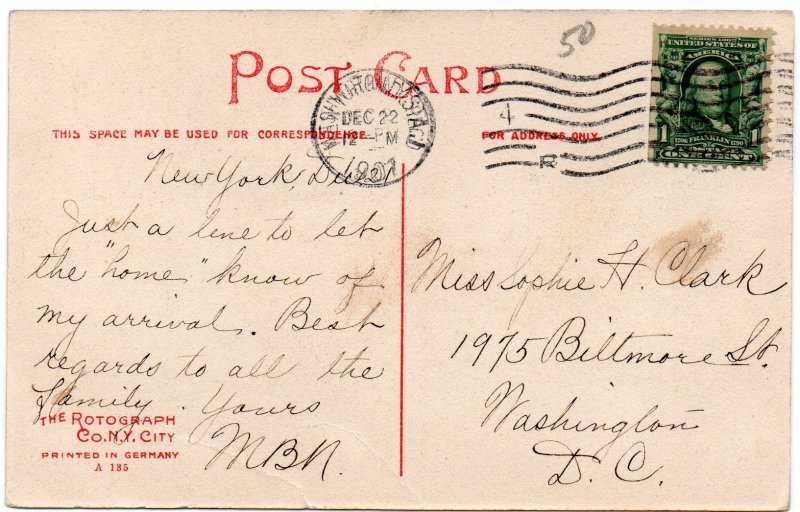 50
POST CARD
NEW YORK, N.Y. STA. D
DEC 22
12 - PM
1907
4
R
SERIES 1902
UNITED STATES OF
AMERICA
1 1
1706 FRANKLIN 1790
POSTAGE
ONE CENT
THIS SPACE MAY BE USED FOR CORRESPONDENCE
FOR ADDRESS ONLY.
New York, Dec
Just a line to let
the "home" know of
my arrival. Best
regards to all the
family. Yours
MBN.
Miss Sophie H. Clark
1975 Biltmore St.
Washington
D. C.
THE ROTOGRAPH
CO. N.Y. CITY
PRINTED IN GERMANY
A 185